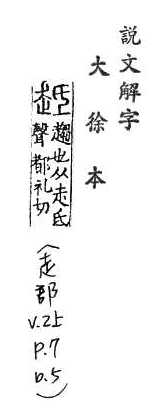 說文解字
大徐本
趆 趨也从走氐
聲都礼切
(走部 v.2上 p.7 b.5)